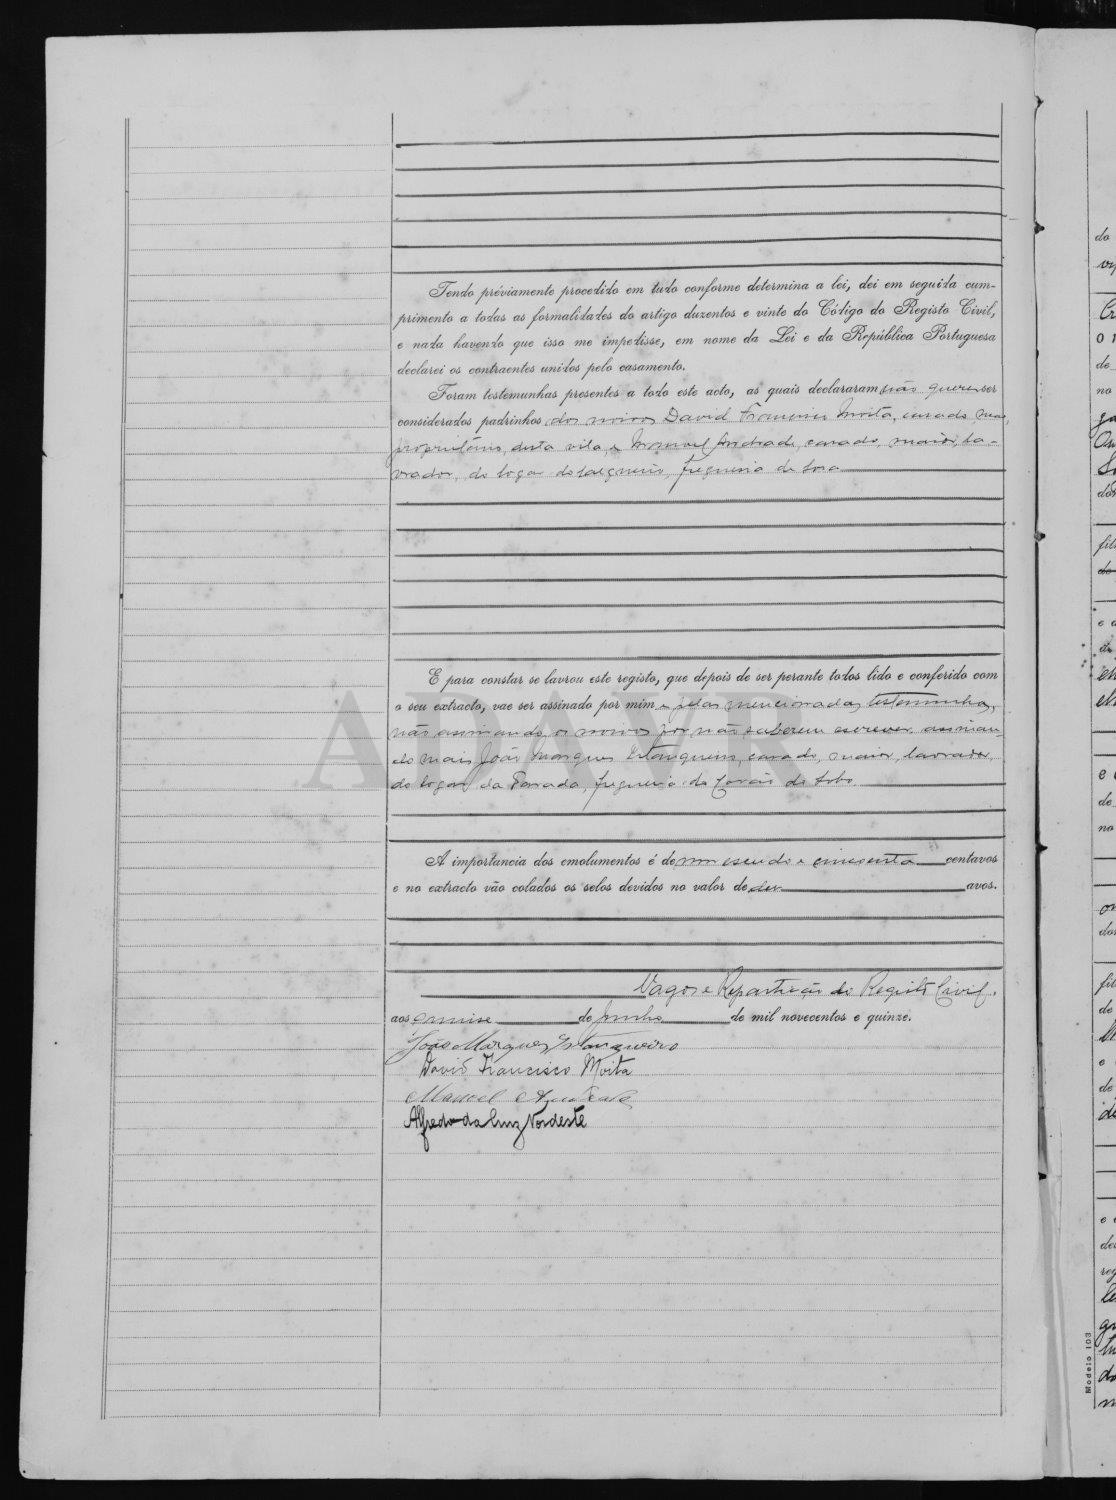 Tendo préviamente procedido em tudo conforme determina a lei, dei em seguida cum-
primento a todas as formalidades do artigo duzentos e vinte do Código do Registo Civil,
e nada havendo que isso me impedisse, em nome da Lei e da República Portuguesa
declarei os contraentes unidos pelo casamento.
Foram testemunhas presentes a todo este acto, as quais declararam não querer ser
considerados padrinhos dos noivos David Francisco Moita, casado, maior,
proprietário, desta vila, e Manuel Andrade, casado, maior, la-
vrador, do logar do Salgueiro, freguesia de Soza
E para constar se lavrou este registo, que depois de ser perante todos lido e conferido com
o seu extracto, vae ser assinado por mim e pelas mencionadas testemunhas,
não assinando os noivos por não saberem escrever, assinan-
do mais João Marques Estanqueiro, casado, maior, lavrador,
do logar da Parada, freguesia de Covão do Lobo
A importancia dos emolumentos é de um escudo e cincoenta centavos
e no extracto vão colados os selos devidos no valor de dez avos.
Vagos e Repartição do Registo Civil,
aos quinse de Junho de mil novecentos e quinze.
João Marques Estanqueiro
David Francisco Moita
Manuel Andrade
Alfredo da Cruz Nordeste
ADAVR
Modelo 103